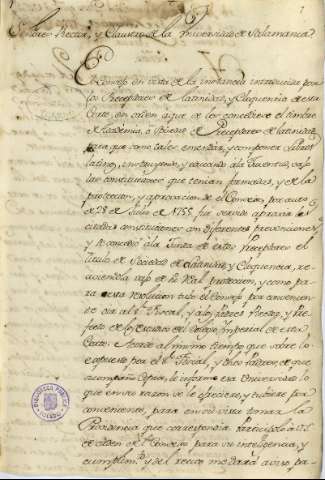 Señores Rector, y Claustro de la Universidad de Salamanca.
El Consejo en vista de la instancia introducida por
los Preceptores de latinidad, y Eloquencia de esta
Corte, en orden a que se les concediese el timbre
de Academia, o Sociedad de Preceptores de latinidad,
para que como tales enmendar, y componer Libros
latinos, instruyesen, y educasen a la Juventud, bajo
las constituciones que tenian formadas, y de la
proteccion, y aprovacion del Consejo, por auto
de 28 de Julio de 1755, fue servido aprovar las
citadas constituciones con diferentes prevenciones,
y concedio a la Junta de estos Preceptores el
titulo de Sociedad de latinidad, y Eloquencia, re-
civiendola vajo de la Real proteccion, y como pa-
ra esta resolucion tubo el Consejo por conveniente
oir al Sr. Fiscal, y a los Padres Rector, y Pre-
fecto de los Estudios del Colegio Imperial de esta
Corte: Acordo al mismo tiempo que sobre lo
expuesto por el Sr. Fiscal, y dhos Padres, de que
acompaño Copias, le informe esa Universidad lo
que en esta razon se le ofreciere, y tubiere por
conveniente, para en su vista tomar la
Providencia que corresponda. Participolo a V.S.
de orden del Consejo para su inteligencia, y
cumplimto. y del recivo me dará aviso pa-
BIBLIOTECA PUBLICA
TOLEDO